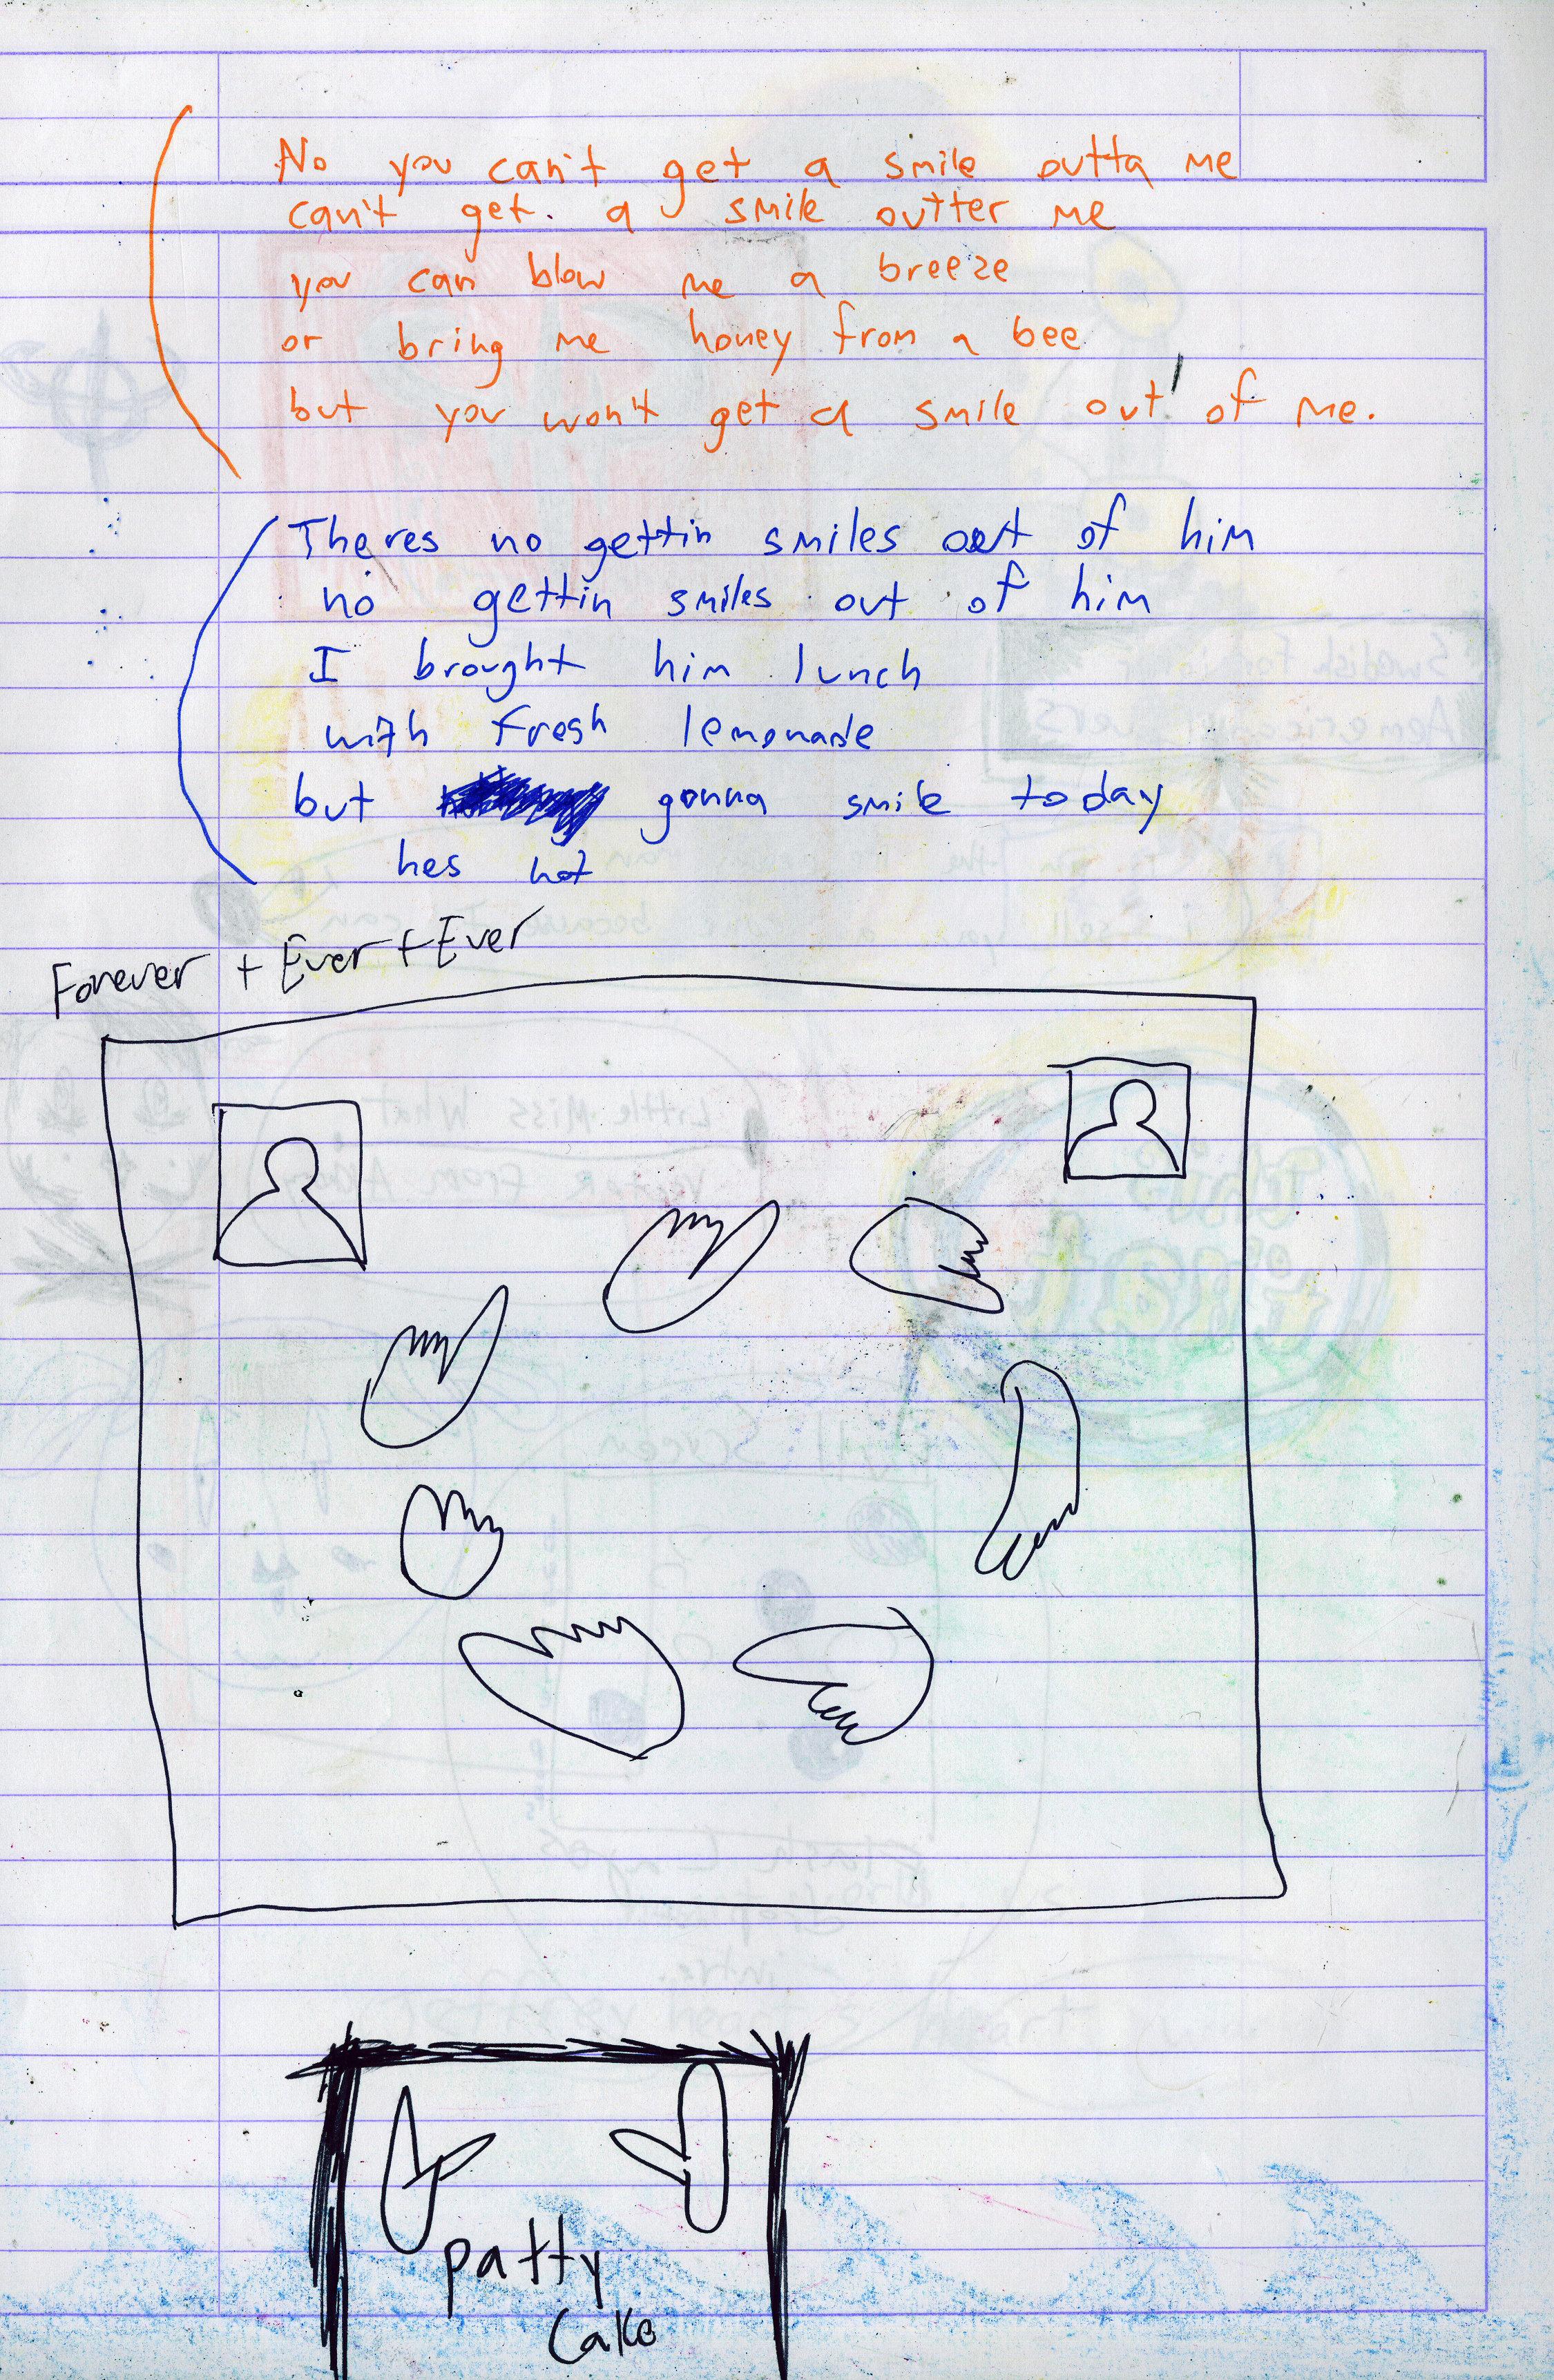 No you can't get a smile outta me
can't get a smile outter me
you can blow me a breeze
or bring me honey from a bee
but you won't get a smile out of me.
Theres no gettin smiles out of him
no gettin smiles out of him
I brought him lunch
with fresh lemonade
but gonna smile today
hes not
Forever + Ever + Ever
patty
Cake